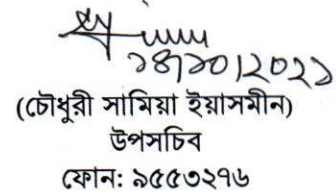 ২৪/১০/২০২১
(চৌধুরী সামিয়া ইয়াসমীন)
উপসচিব
ফোন: ৯৫৫৩২৭৬